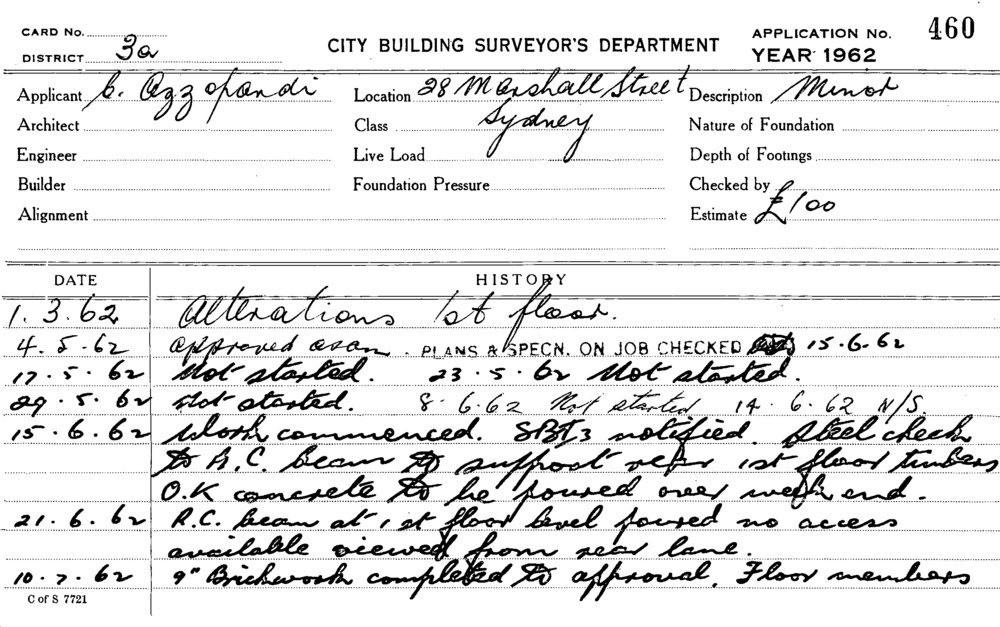 CARD No.
DISTRICT 3a
CITY BUILDING SURVEYOR'S DEPARTMENT
APPLICATION No. 460
YEAR 1962
Applicant C. Azzopardi
Location 28 Marshall Street
Sydney
Description Minor
Architect
Class
Nature of Foundation
Engineer
Live Load
Depth of Footings
Builder
Foundation Pressure
Checked by
Alignment
Estimate £100
DATE HISTORY
1.3.62 Alterations 1st floor.
4.5.62 approved . PLANS & SPECN. ON JOB CHECKED 15.6.62
17.5.62 Not started. 23.5.62 Not started.
29.5.62 Not started. 8.6.62 Not started 14.6.62 N/S.
15.6.62 Work commenced. notified. Steel check
to R.C. beam to support 1st floor timbers
O.K concrete to be poured over week end.
21.6.62 R.C. beam at 1st floor level poured no access
available viewed from rear lane.
10.7.62 9" Brickwork completed to approval. Floor members
C of S 7721